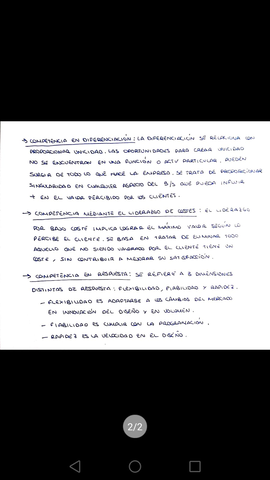 → COMPETENCIA EN DIFERENCIACIÓN: LA DIFERENCIACIÓN SE RELACIONA CON
PROPORCIONAR UNICIDAD. LAS OPORTUNIDADES PARA CREAR UNICIDAD
NO SE ENCUENTRAN EN UNA FUNCIÓN O ACTV PARTICULAR, PUEDEN
SURGIR DE TODO LO QUE HACE LA EMPRESA. SE TRATA DE PROPORCIONAR
SINGULARIDAD EN CUALQUIER ASPECTO DEL B/S QUE PUEDA INFLUIR
→ EN EL VALOR PERCIBIDO POR LOS CLIENTES.
→ COMPETENCIA MEDIANTE EL LIDERAZGO DE COSTES: EL LIDERAZGO
POR BAJO COSTE IMPLICA LOGRAR EL MÁXIMO VALOR SEGÚN LO
PERCIBE EL CLIENTE. SE BASA EN TRATAR DE ELIMINAR TODO
AQUELLO QUE NO SIENDO VALORADO POR EL CLIENTE TIENE UN
COSTE, SIN CONTRIBUIR A MEJORAR SU SATISFACCIÓN.
→ COMPETENCIA EN RESPUESTA: SE REFIERE A 3 DIMENSIONES
DISTINTAS DE RESPUESTA: FLEXIBILIDAD, FIABILIDAD Y RAPIDEZ.
- FLEXIBILIDAD ES ADAPTARSE A LOS CAMBIOS DEL MERCADO
EN INNOVACIÓN DEL DISEÑO Y EN VOLUMEN.
- FIABILIDAD ES CUMPLIR CON LA PROGRAMACIÓN.
- RAPIDEZ ES LA VELOCIDAD EN EL DISEÑO.
2/2